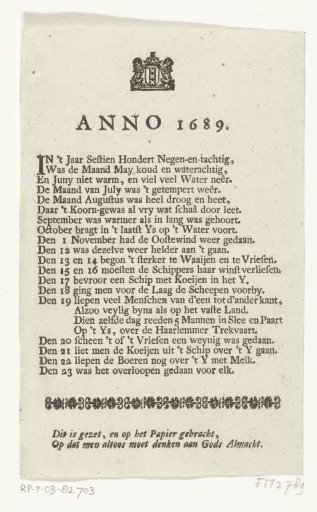 ANNO 1689.
IN 't Jaar Sestien Hondert Negen-en-tachtig,
Was de Maand May koud en waterachtig,
En Juny niet warm, en viel veel Water neêr.
De Maand van July was 't getempert weêr.
De Maand Augustus was heel droog en heet,
Daar 't Koorn-gewas al vry wat schad door leet.
September was warmer als in lang was gehoort.
October bragt in 't laatst Ys op 't Water voort.
Den 1 November had de Oostewind weer gedaan.
Den 12 was dezelve weer helder aan 't gaan.
Den 13 en 14 begon 't sterker te Waaijen en te Vriesen.
Den 15 en 16 moesten de Schippers haar winst verliesen.
Den 17 bevroor een Schip met Koeijen in het Y.
Den 18 ging men voor de Laag de Scheepen voorby.
Den 19 liepen veel Menschen van d'een tot d'ander kant,
Alzoo veylig byna als op het vaste Land.
Dien zelfde dag reeden 5 Mannen in Slee en Paart
Op 't Ys, over de Haarlemmer Trekvaart.
Den 20 scheen 't of 't Vriesen een weynig was gedaan.
Den 21 liet men de Koeijen uit 't Schip over 't Y gaan.
Den 22 liepen de Boeren nog over 't Y met Melk.
Den 23 was het overloopen gedaan voor elk.
Dit is gezet, en op het Papier gebracht,
Op dat men altoos moet denken aan Gods Almacht.
RP-P-OB-82.703
FM 2789